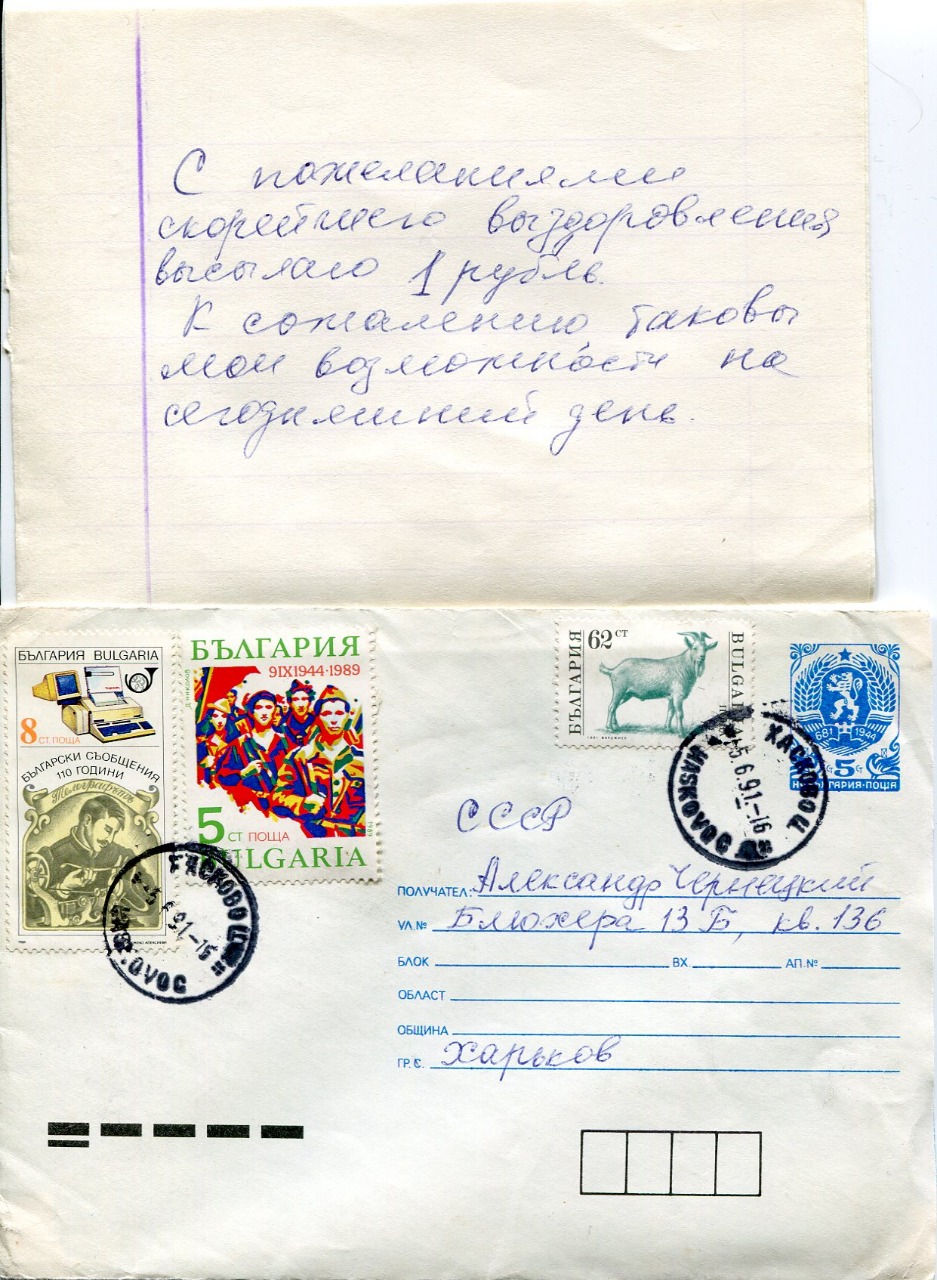 С пожеланиями
скорейшего выздоровления
высылаю 1 рубль.
К сожалению таковы
мои возможности на
сегодняшний день.
БЪЛГАРИЯ BULGARIA
8 СТ. ПОЩА
БЪЛГАРСКИ СЪОБЩЕНИЯ
110 ГОДИНИ
Телеграфистъ
БЪЛГАРИЯ
9IX1944·1989
5 СТ ПОЩА
BULGARIA
1989
БЪЛГАРИЯ
62 СТ
BULGARIA
681 1944
5
НР БЪЛГАРИЯ·ПОЩА
ХАСКОВО Ц
-5.6.91.-16
HASKOVO
ХАСКОВО Ц
-5.6.91-16
СССР
ПОЛУЧАТЕЛ: Александр Чернецкий
УЛ.№ Блюхера 13 Б, кв. 136
БЛОК ВХ АП.№
ОБЛАСТ
ОБЩИНА
ГР.С. Харьков